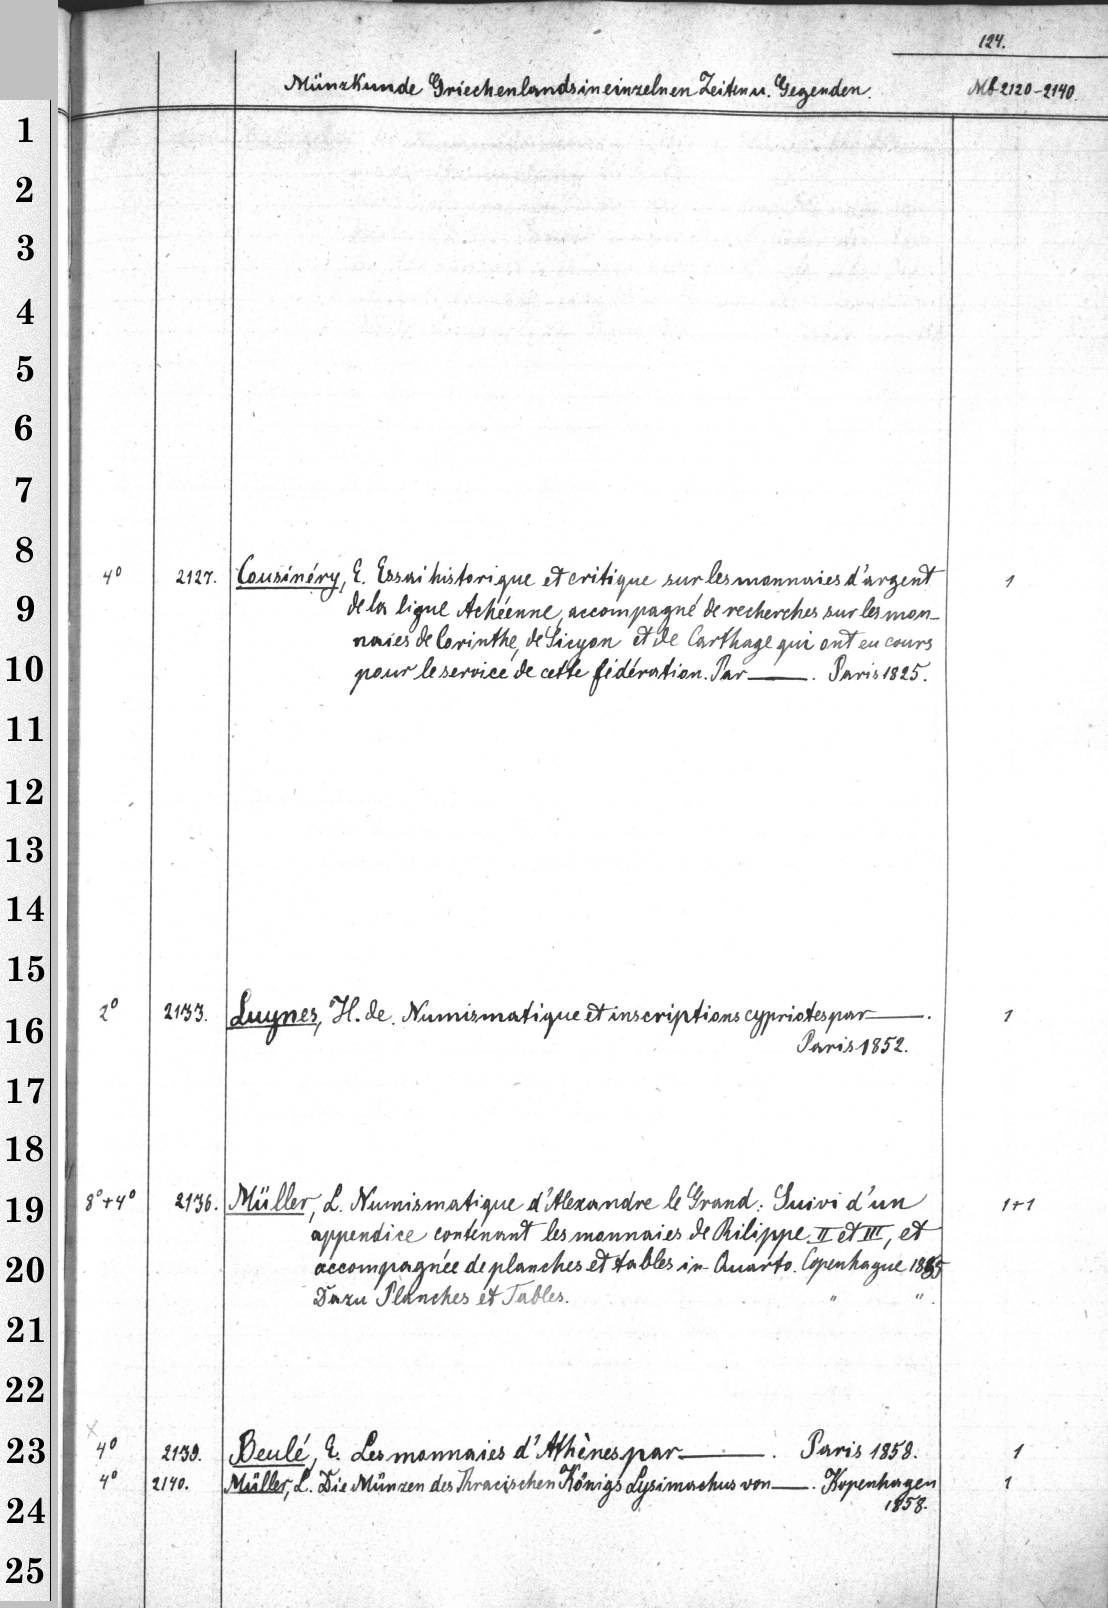 124.
Münzkunde Griechenlands in einzelnen Zeiten u. Gegenden.
Mb 2120-2140.
1
2
3
4
5
6
7
8
4° 2127. Cousinéry, E. Essai historique et critique sur les monnaies d'argent 1
9
de la ligue Achéenne, accompagné de recherches sur les mon-
naies de Corinthe, de Sicyon et de Carthage qui ont eu cours
10
pour le service de cette fédération. Par ——. Paris 1825.
11
12
13
14
15
2° 2133. Luynes, H. de. Numismatique et inscriptions cypriotes par ——. 1
16
Paris 1852.
17
18
19
8°+4° 2136. Müller, L. Numismatique d'Alexandre le Grand. Suivi d'un 1+1
appendice contenant les monnaies de Philippe II et III, et
20
accompagnée de planches et tables in-Quarto. Copenhague 1855
Dazu Planches et Tables. " ".
21
22
23
x
4° 2139. Beulé, E. Les monnaies d'Athènes par ——. Paris 1858. 1
4° 2140. Müller, L. Die Münzen des Thracischen Königs Lysimachus von ——. Kopenhagen 1
24
1858.
25